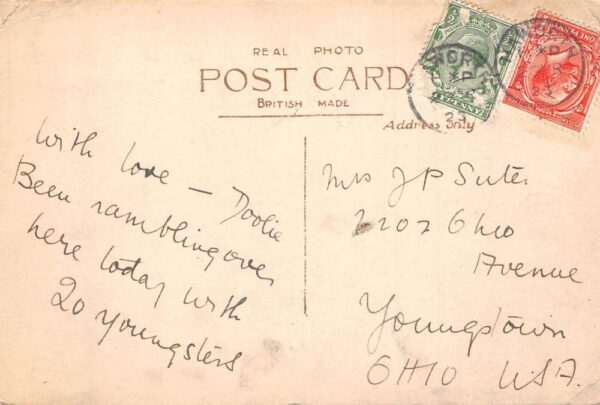 REAL PHOTO
POST CARD
BRITISH MADE
Address only
With love — Doolie
Been rambling over
here today with
20 youngsters
Mrs J P Suter
2202 Ohio
Avenue
Youngstown
OHIO USA.
23